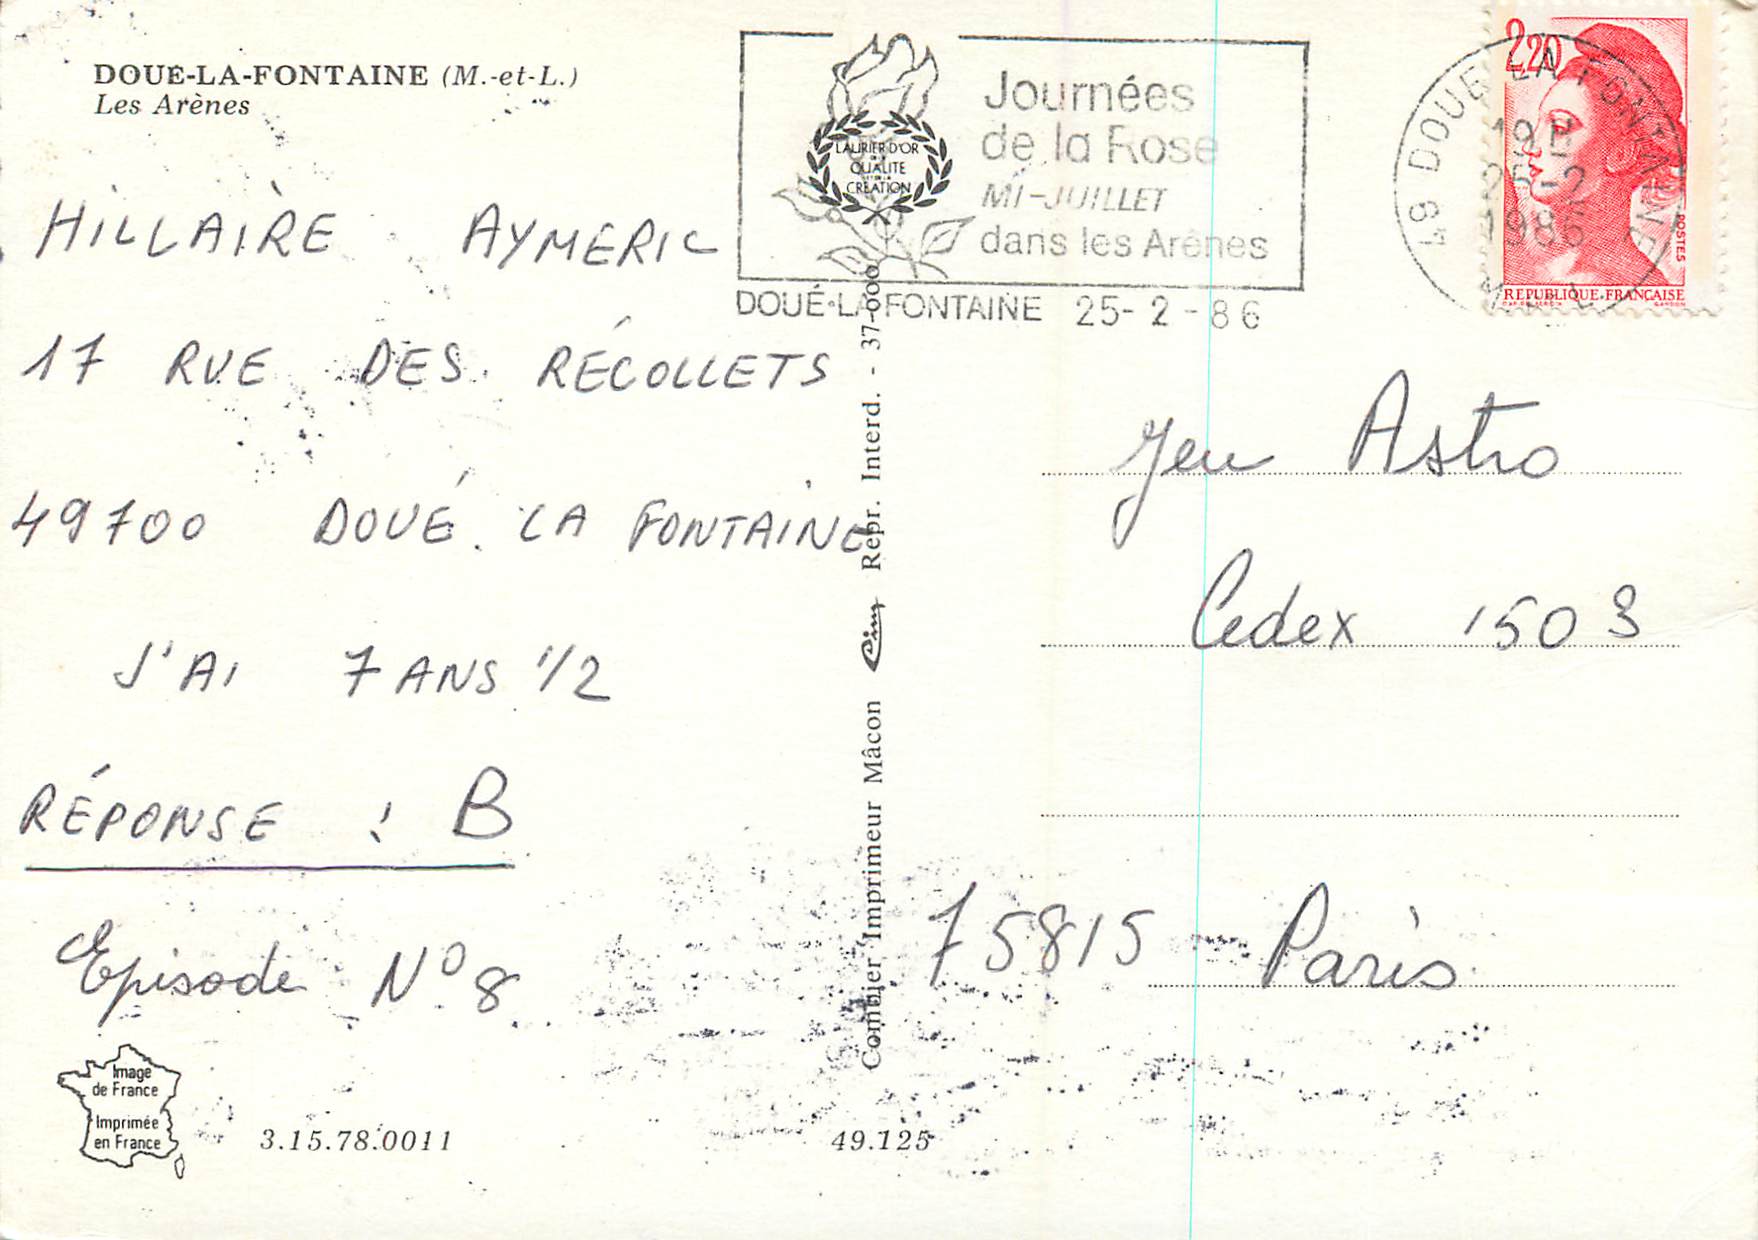 DOUÉ-LA-FONTAINE (M.-et-L.)
Les Arènes
HILLAIRE AYMERIC
17 RUE DES RÉCOLLETS
49700 DOUÉ LA FONTAINE
J'AI 7 ANS 1/2
RÉPONSE : B
Episode N° 8
Image
de France
Imprimée
en France
3.15.78.0011
49.125
Combier Imprimeur Mâcon Cim Repr. Interd. - 37-000
LAURIER D'OR
QUALITÉ
CRÉATION
Journées
de la Rose
MI-JUILLET
dans les Arènes
DOUÉ-LA-FONTAINE 25-2-86
49 DOUE LA FONTAINE
19H
25-2
1986
2,20
POSTES
REPUBLIQUE FRANÇAISE
Jeu Astro
Cedex 1503
75815 Paris